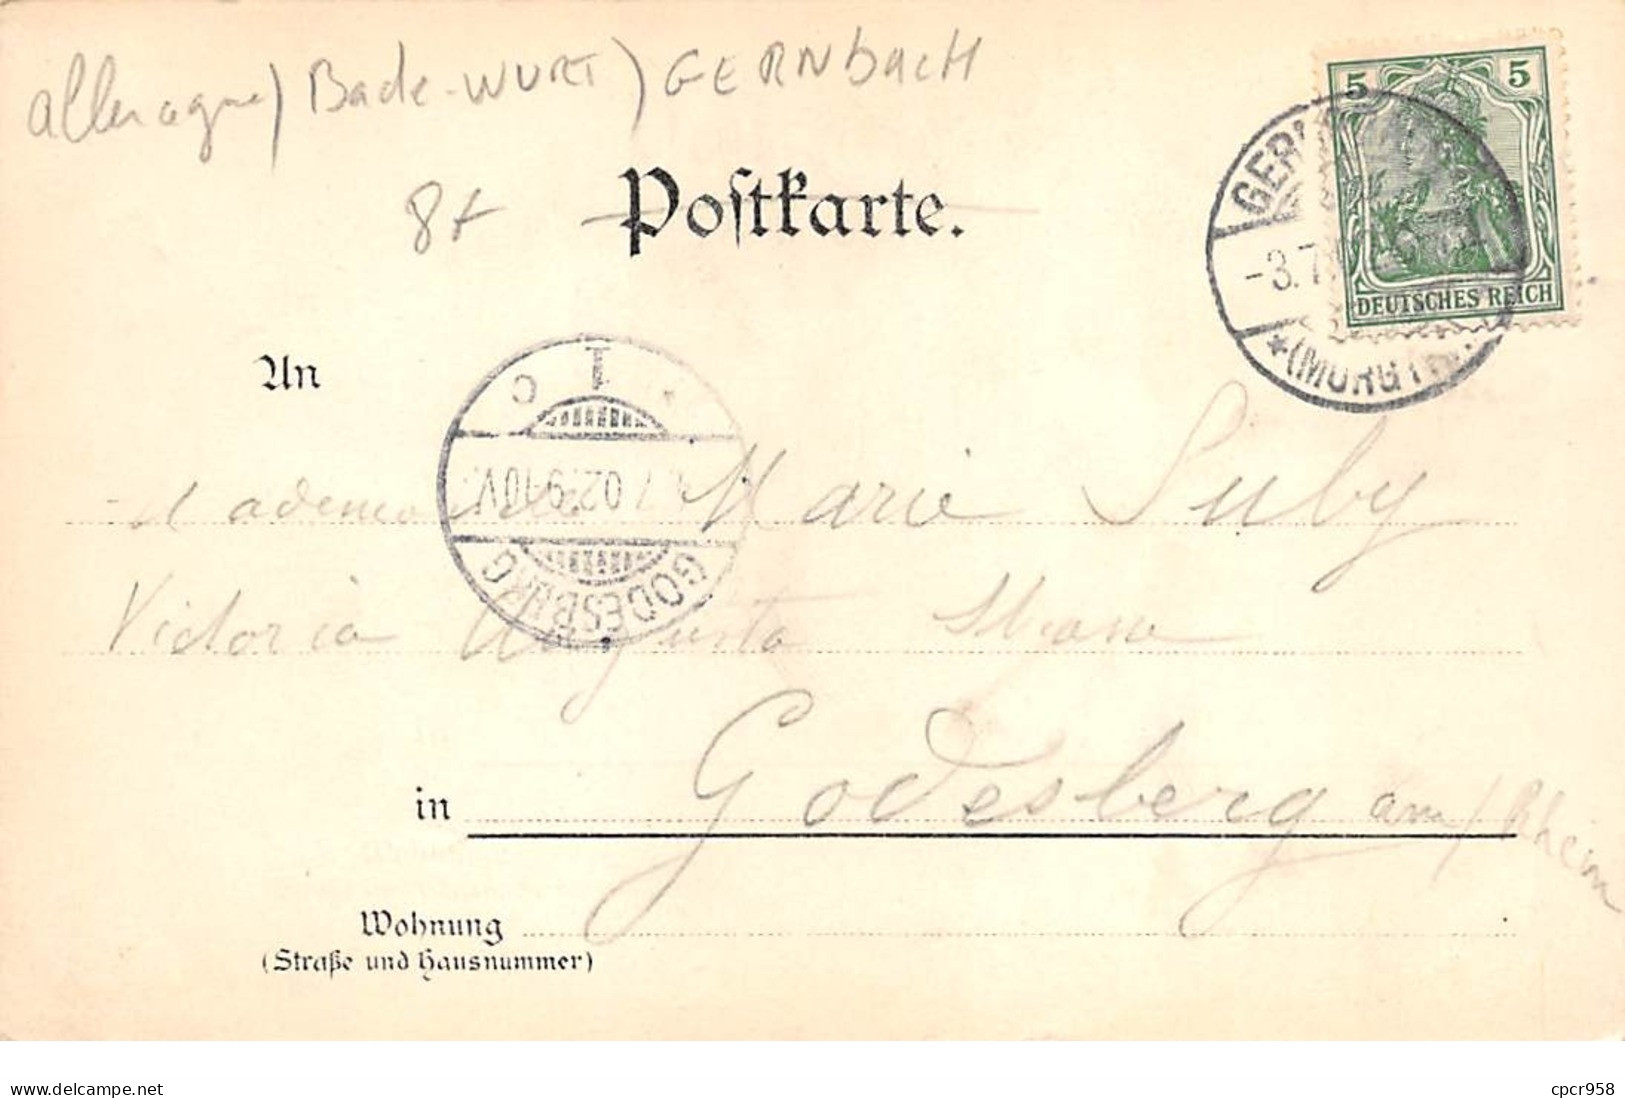 allemagne) Bade-WURT) GERNbACH
8+
Postkarte.
5 5
DEUTSCHES REICH
GER
-3.7
*(MURGT
An
1
C
7.02.9-10V.
GODESBERG
Mademoiselle Marie Suby
Victoria Augusta Strasse
in Godesberg am/Rhein
Wohnung
(Straße und Hausnummer)
www.delcampe.net
cpcr958